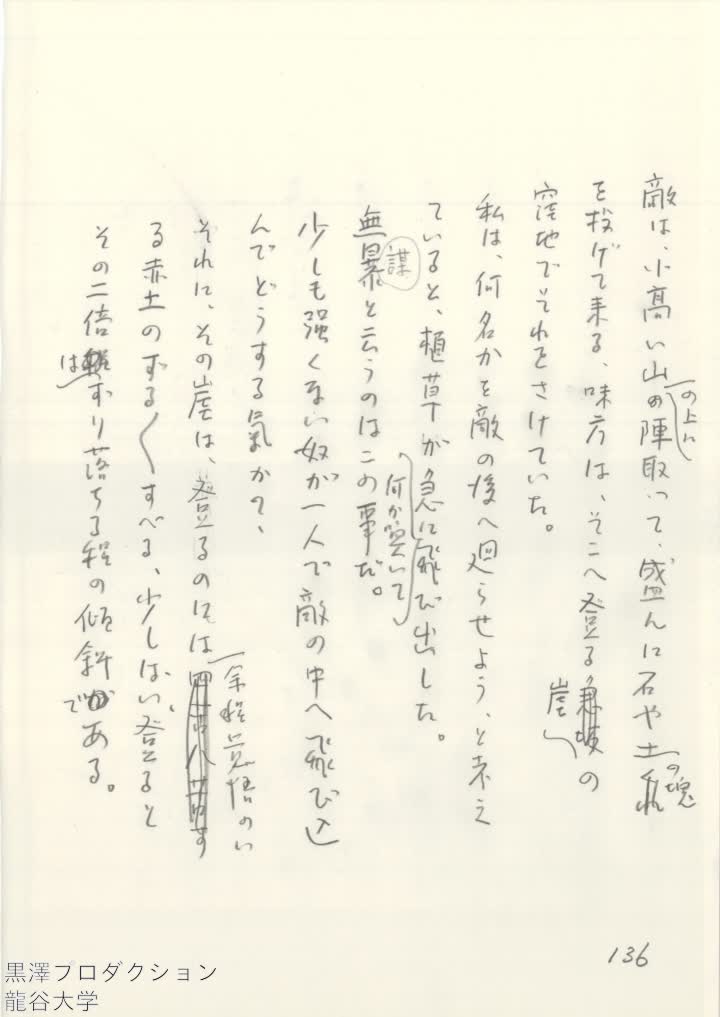 敵は、小高い山の上に陣取って、盛んに石や土の塊
を投げて来る、味方は、そこへ登る崖の
窪地でそれをさけていた。
私は、何名かを敵の後へ廻らせよう、と考え
ていると、植草が急に何か喚いて飛び出した。
無謀と云うのはこの事だ。
少しも強くない奴が一人で敵の中へ飛び込
んでどうする氣かて、
それに、その崖は、登るのには余程覚悟のい
る赤土のずる〳〵すべる、少しばい登ると
その二倍はずり落ちる程の傾斜である。
136
黒澤プロダクション
龍谷大学